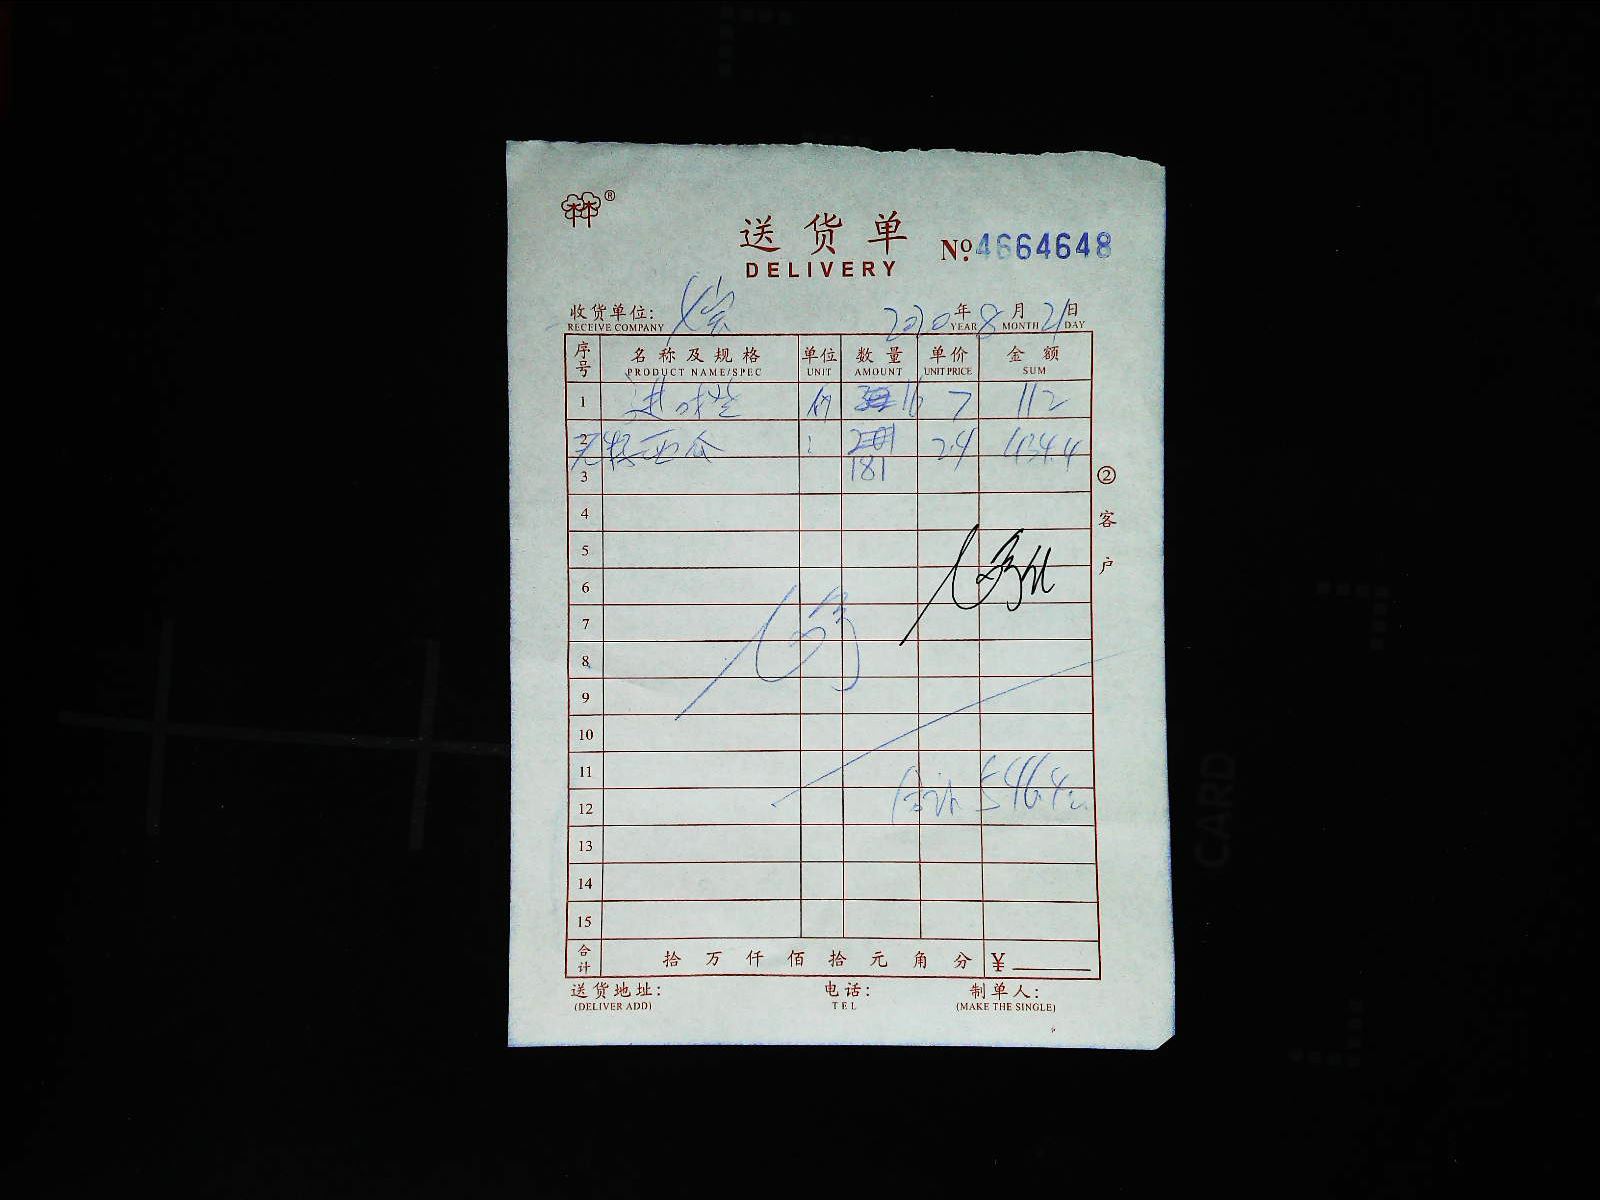 ®
送货单
DELIVERY
№ 4664648
收货单位:
RECEIVE COMPANY
2020年8月21日
YEAR MONTH DAY
序号 名称及规格 单位 数量 单价 金额
PRODUCT NAME/SPEC UNIT AMOUNT UNIT PRICE SUM
1 进口 斤 16 7 112
2 无籽西瓜 : 181 2.4 434.4
3
4
5
6
7
8
9
10
11
合计 546.4元
12
13
14
15
合计 拾万仟佰拾元角分 ¥
送货地址: 电话: 制单人:
(DELIVER ADD) TEL (MAKE THE SINGLE)
②客户
CARD